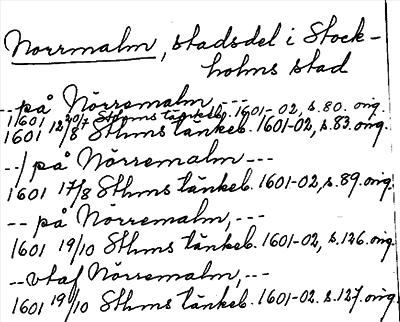 Norrmalm, stadsdel i Stock-
holms stad
-- på Nörremalm, ---
1601 20/7 Sthms tänkeb. 1601-02, s. 80. orig.
1601 12/8 Sthms tänkeb. 1601-02, s. 83. orig.
--/ på Nörremalm ---
1601 17/8 Sthms tänkeb. 1601-02, s. 89. orig.
-- på Nörremalm, ---
1601 19/10 Sthms tänkeb. 1601-02, s. 126. orig.
-- vtaf Nörremalm, ---
1601 19/10 Sthms tänkeb. 1601-02. s. 127. orig.